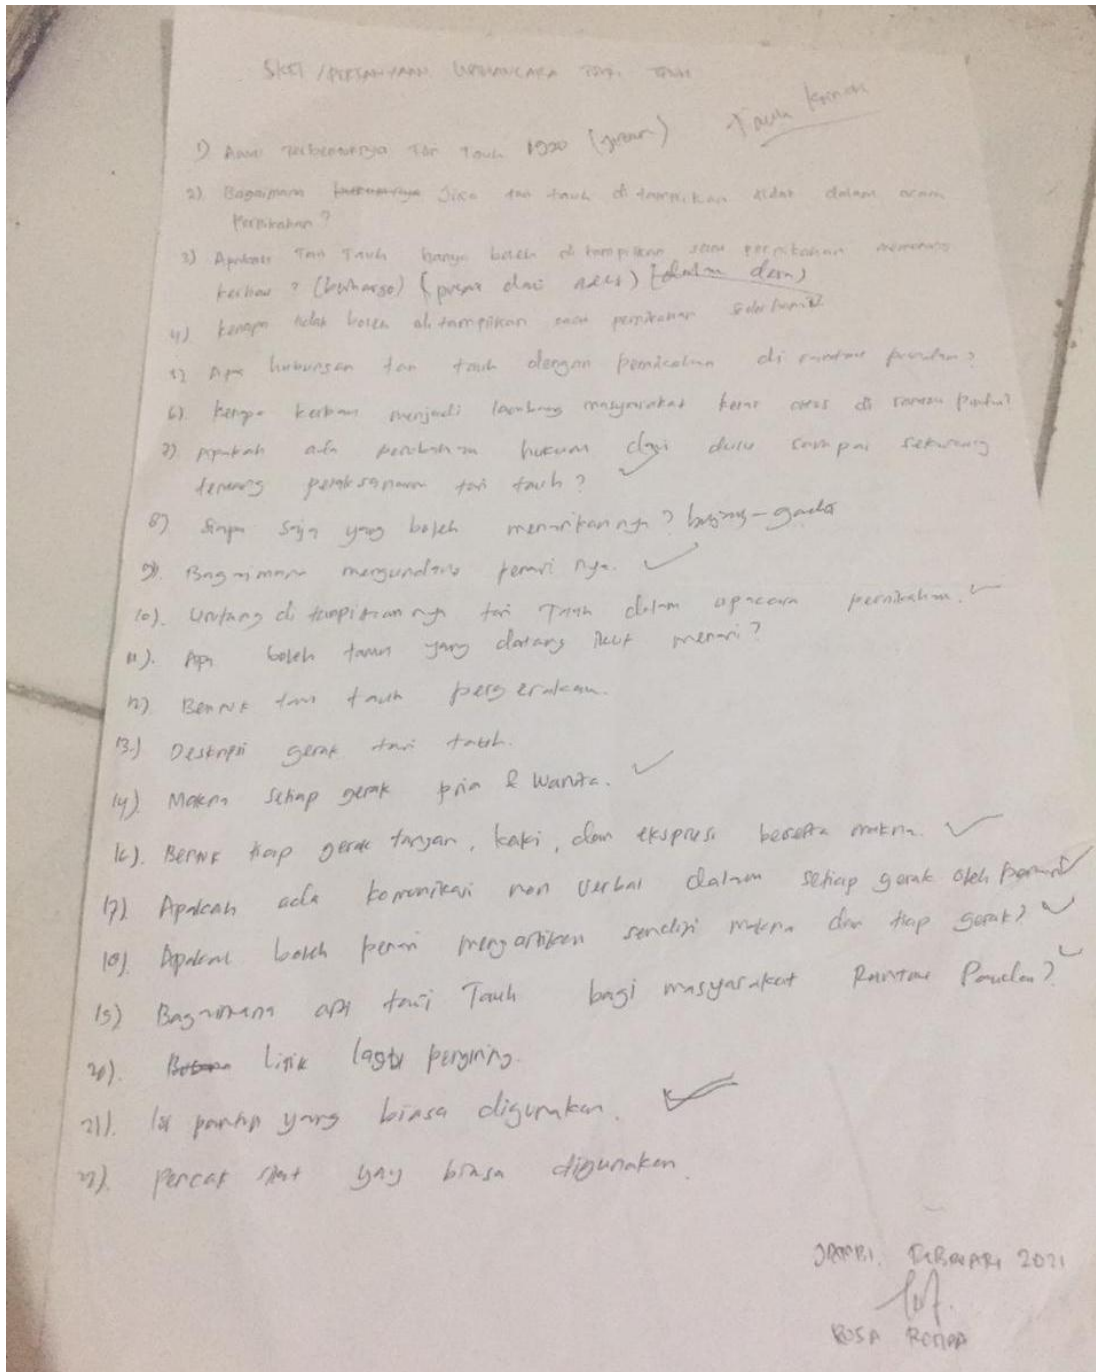 1) Awal terbentuknya Tari Tauh 1920 (zaman)
2) Bagaimana jika tari tauh di tampilkan tidak dalam acara
Pernikahan?
3) Apakah Tari Tauh hanya boleh di tampilkan saat pernikahan memotong
kerbau? (berharga) (dalam desa)
4) kenapa tidak boleh di tampilkan saat pernikahan sederhana
5) Apa hubungan tari tauh dengan pernikahan di rantau pandan?
6) Kenapa kerbau menjadi lambang masyarakat kelas atas di rantau pandan?
7) Apakah ada perubahan hukum dari dulu sampai sekarang
tentang pelaksanaan tari tauh?
8) Siapa saja yang boleh menarikannya? bujang-gadis
9). Bagaimana mengundang penari nya.
10). Undang di tampilkan nya tari Tauh dalam upacara pernikahan.
11). Apa boleh tamu yang datang ikut menari?
12) Bentuk tari tauh pergerakan.
13.) Deskripsi gerak tari tauh.
14). Makna setiap gerak pria & wanita.
16). Bentuk tiap gerak tangan, kaki, dan ekspresi beserta makna.
17) Apakah ada komunikasi non verbal dalam setiap gerak oleh penari
18). Apakah boleh penari mengartikan sendiri makna dari tiap gerak?
19) Bagaimana arti tari Tauh bagi masyarakat Rantau Pandan?
20). Lirik lagu pengiring.
21). Isi pantun yang biasa digunakan.
22). Pencak silat yang biasa digunakan.
JAMBI, FEBRUARI 2021
ROSA